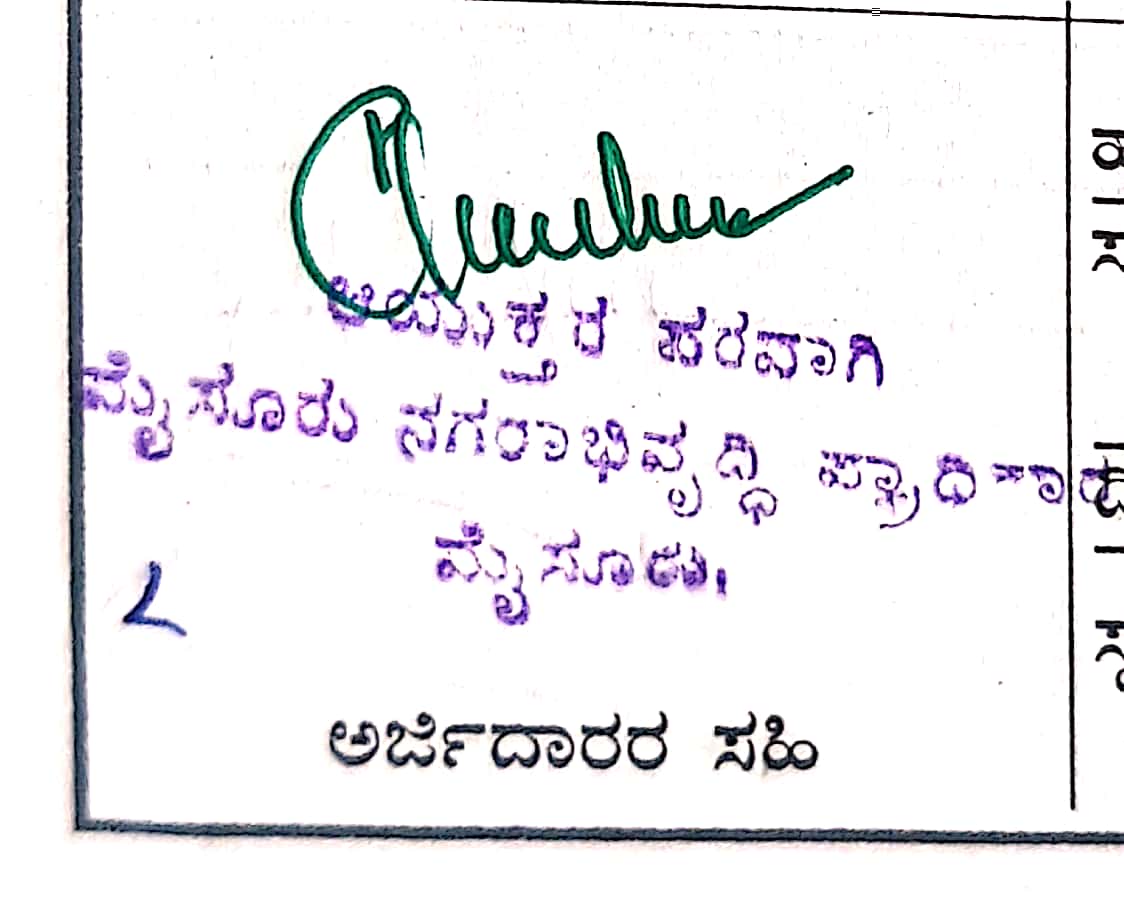 ಆಯುಕ್ತರ ಪರವಾಗಿ
ಮೈಸೂರು ನಗರಾಭಿವೃದ್ಧಿ
ಮೈಸೂರು.
ಅರ್ಜಿದಾರರ ಸಹಿ